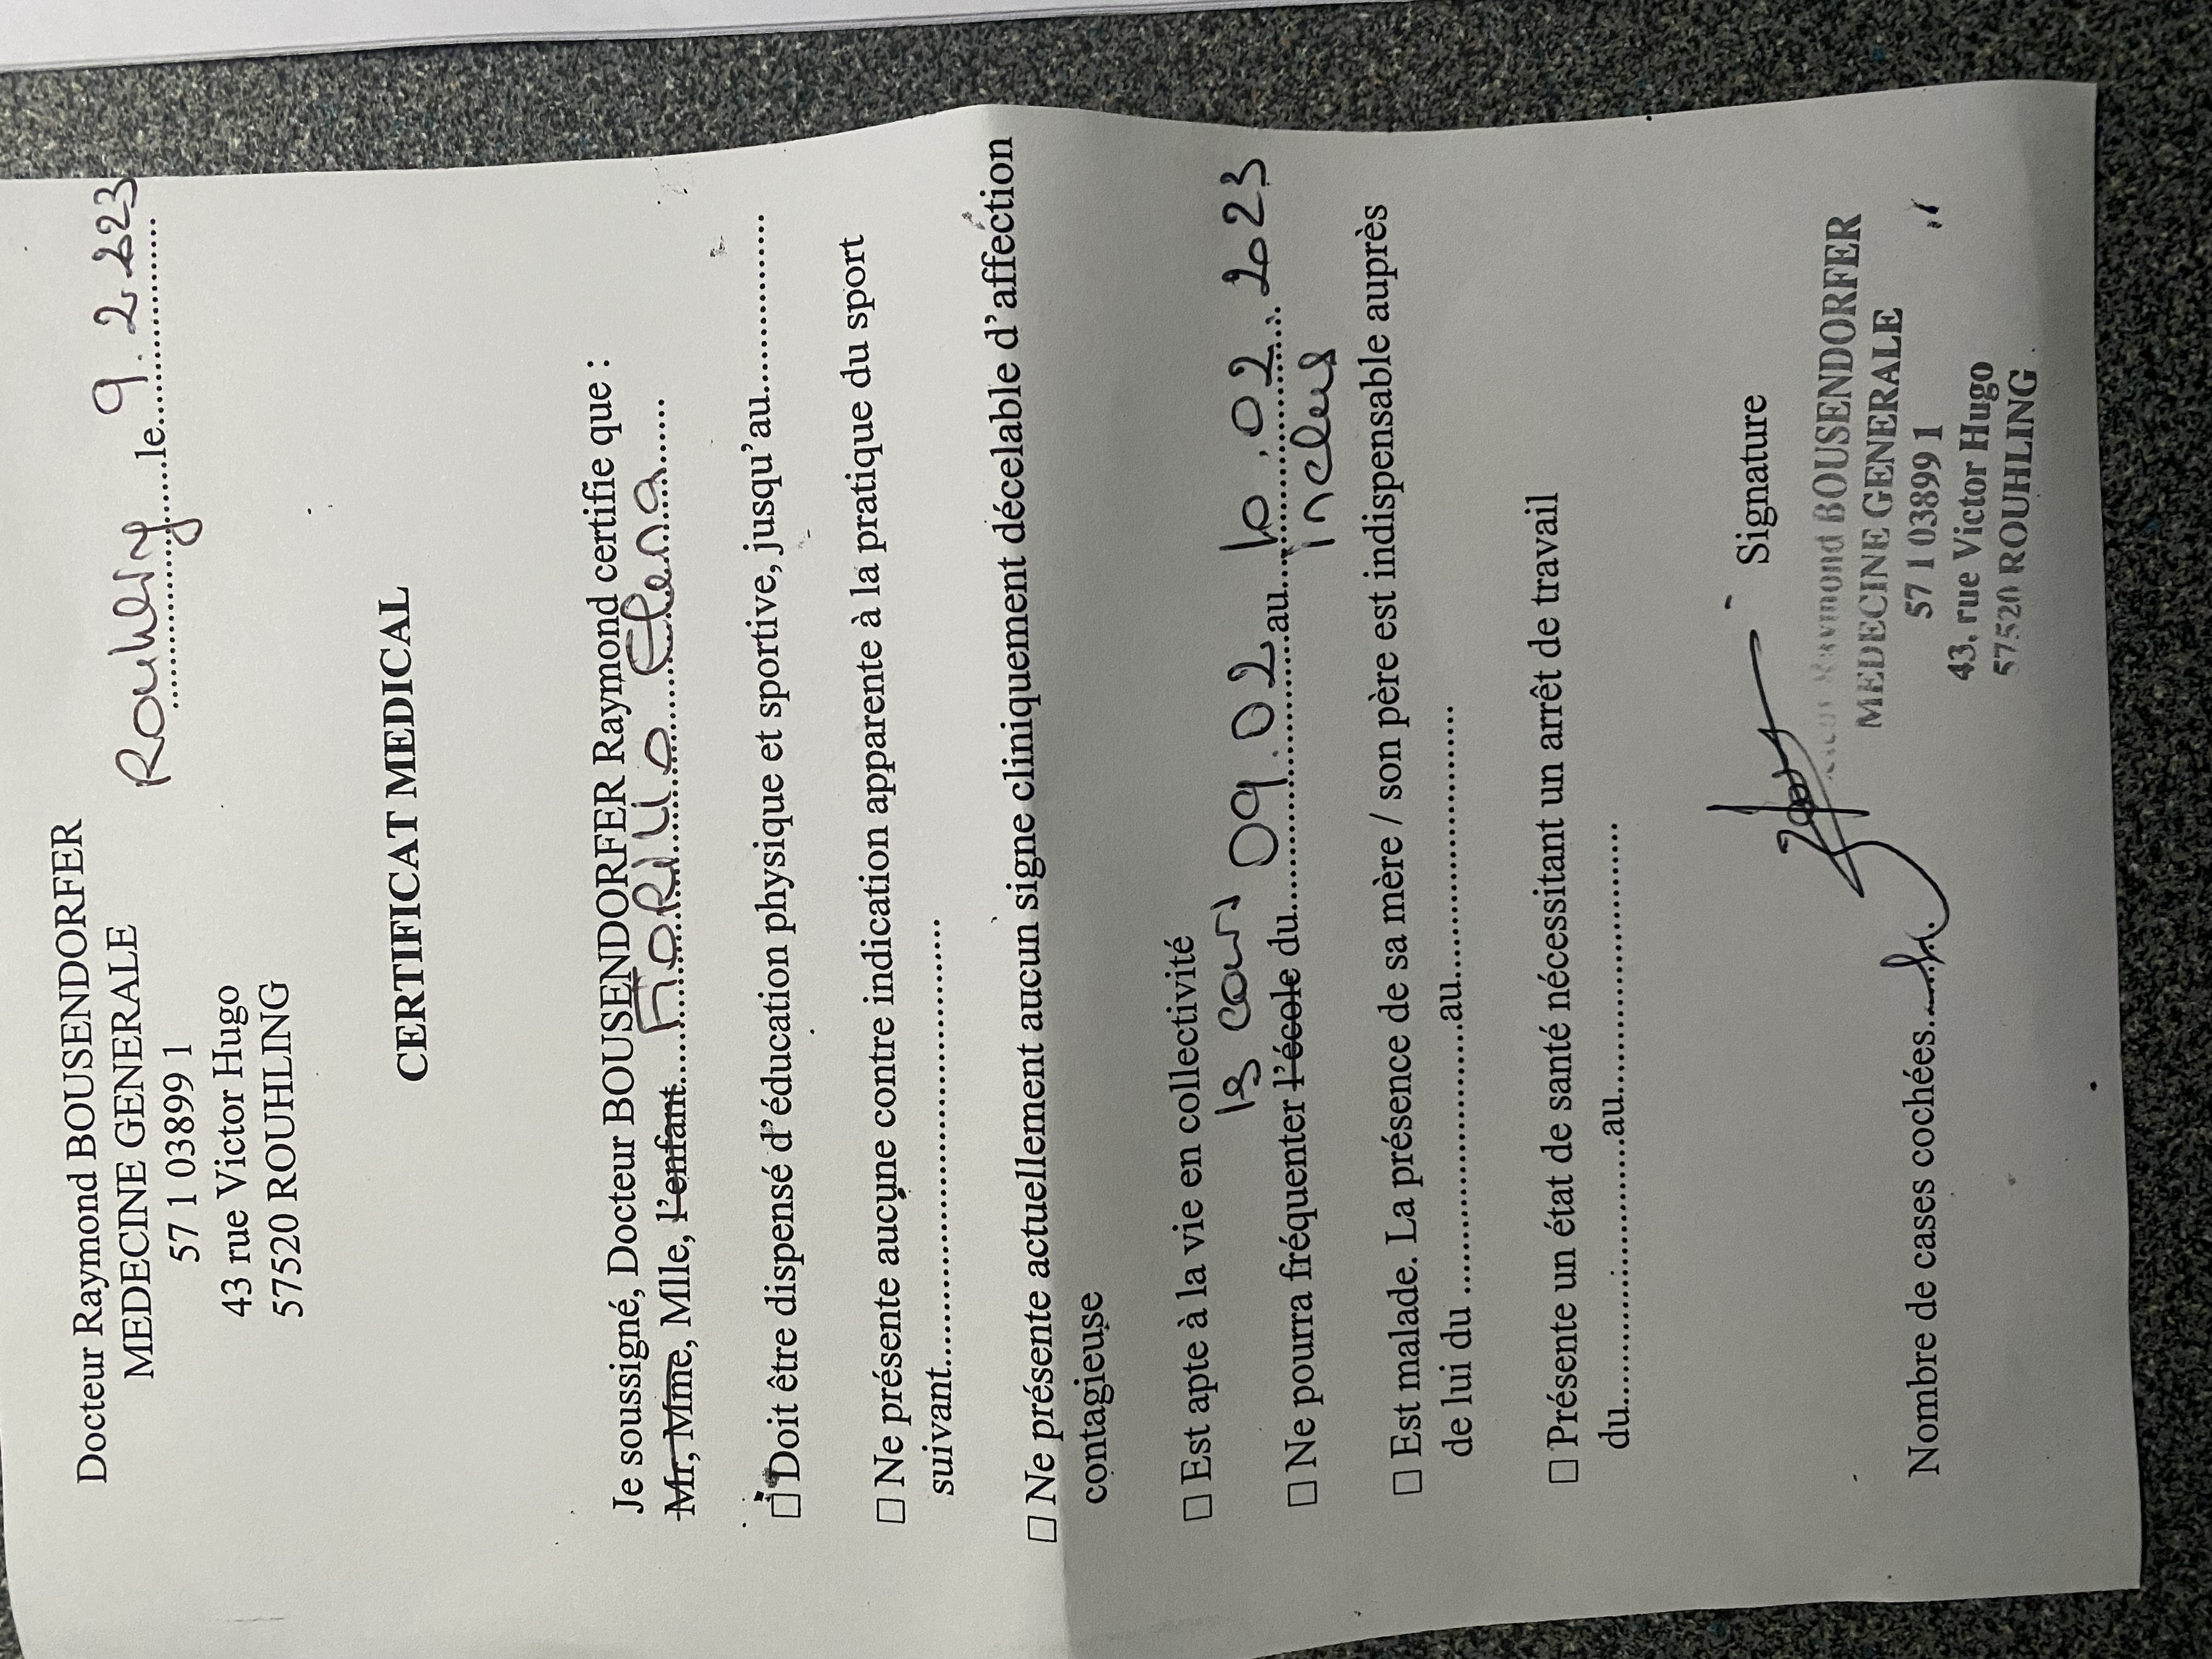 Docteur Raymond BOUSENDORFER
MEDECINE GENERALE
57 1 03899 1
43 rue Victor Hugo
57520 ROUHLING
Rouhling le 9.2.2023
CERTIFICAT MEDICAL
Je soussigné, Docteur BOUSENDORFER Raymond certifie que :
Mr, Mme, Mlle, l'enfant Fiorillo Elena
Doit être dispensé d'éducation physique et sportive, jusqu'au................
Ne présente aucune contre indication apparente à la pratique du sport
suivant........................................
Ne présente actuellement aucun signe cliniquement décelable d'affection
contagieuse
Est apte à la vie en collectivité
les cours
Ne pourra fréquenter l'école du 09.02 au 10.02.2023
inclus
Est malade. La présence de sa mère / son père est indispensable auprès
de lui du .........................au.........................
Présente un état de santé nécessitant un arrêt de travail
du.........................au.........................
Signature
Raymond BOUSENDORFER
MEDECINE GENERALE
57 1 03899 1
43, rue Victor Hugo
57520 ROUHLING
Nombre de cases cochées